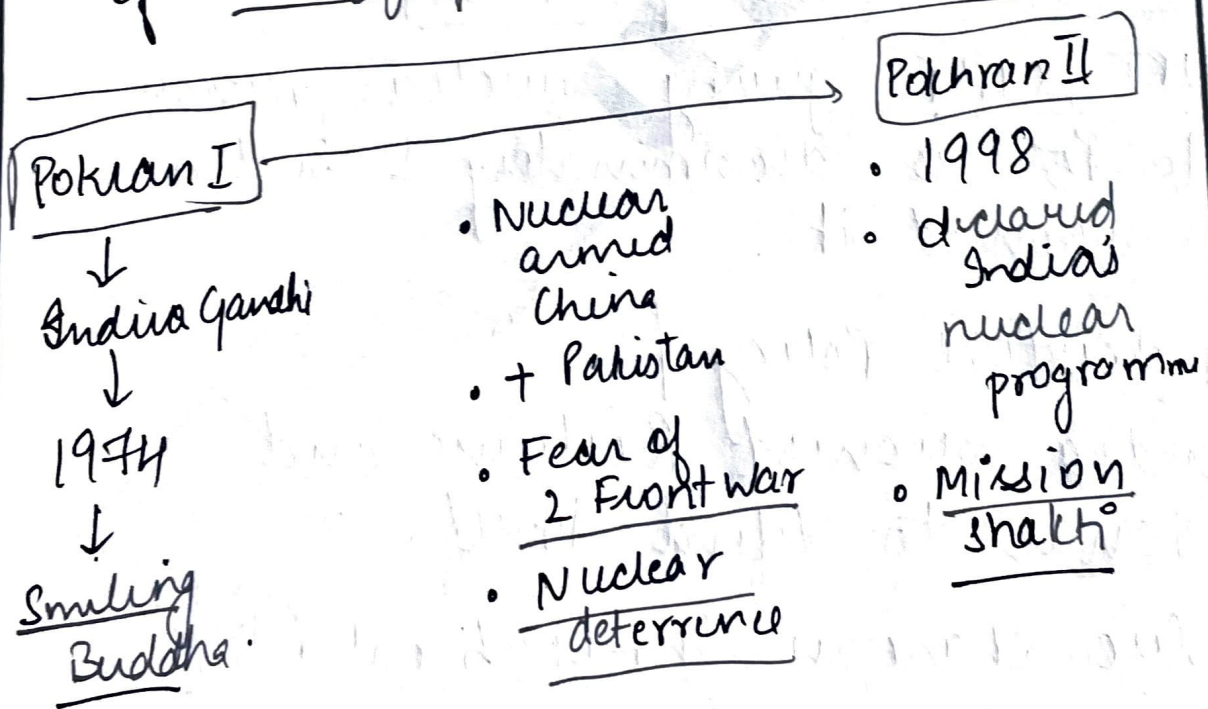 Pokran I
Indira Gandhi
1974
Smiling
Buddha.
• Nuclear
armed
China
• + Pakistan
• Fear of
2 Front war
• Nuclear
deterrence
Pokhran II
• 1998
• declared
India's
nuclear
programme
• Mission
Shakti